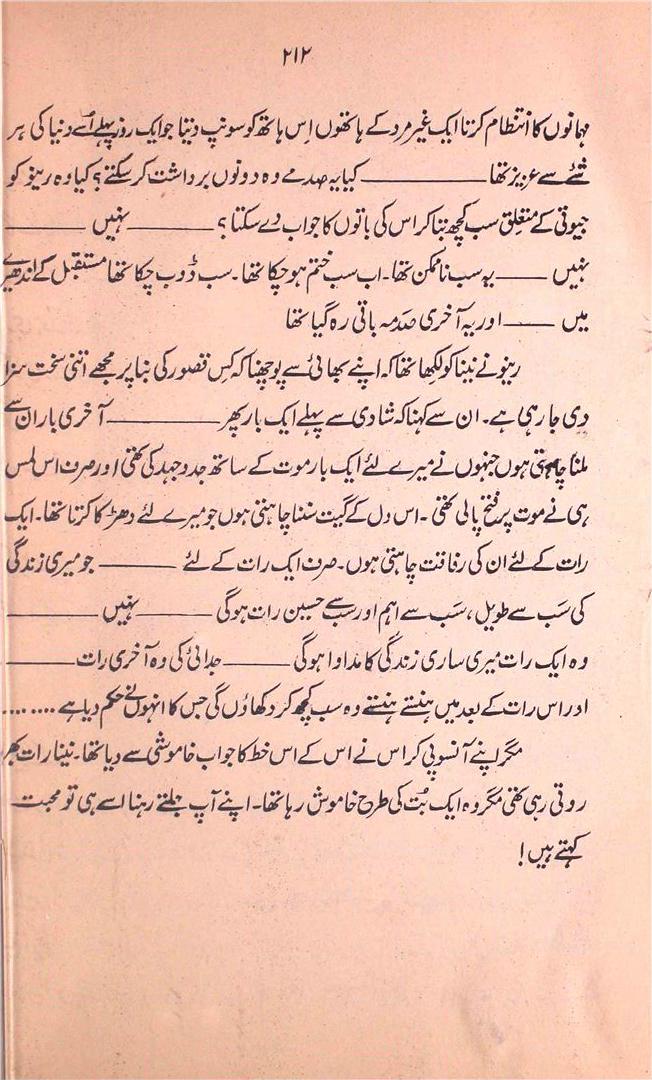 ۲۱۲
مہمانوں کا انتظام کرنا ایک غیر مرد کے ہاتھوں اِس ہاتھ کو سونپ دینا جو ایک روز پہلے اُسے دنیا کی ہر
شئے سے عزیز تھا ———— کیا یہ صدمے وہ دونوں برداشت کر سکتے؟ کیا وہ رینو کو
جیوتی کے متعلق سب کچھ بتا کر اس کی باتوں کا جواب دے سکتا؟ ———— نہیں ————
نہیں —— یہ سب ناممکن تھا۔ اب سب ختم ہو چکا تھا۔ سب ڈوب چکا تھا مستقبل کے اندھیرے
میں —— اور یہ آخری صدمہ باقی رہ گیا تھا
رینو نے نینا کو لکھا تھا کہ اپنے بھائی سے پوچھنا کہ کس قصور کی بنا پر مجھے اتنی سخت سزا
دی جا رہی ہے۔ ان سے کہنا کہ شادی سے پہلے ایک بار پھر ———— آخری بار ان سے
ملنا چاہتی ہوں جنہوں نے میرے لئے ایک بار موت کے ساتھ جدوجہد کی تھی اور صرف اس لمس
ہی نے موت پر فتح پالی تھی۔ اس دل کے گیت سننا چاہتی ہوں جو میرے لئے دھڑکا کرتا تھا۔ ایک
رات کے لئے ان کی رفاقت چاہتی ہوں۔ صرف ایک رات کے لئے ——— جو میری زندگی
کی سَب سے طویل، سَب سے اہم اور سَب سے حسین رات ہوگی ———— نہیں ————
وہ ایک رات میری ساری زندگی کا مداوا ہوگی ——— جدائی کی وہ آخری رات ———
اور اس رات کے بعد میں ہنستے ہنستے وہ سب کچھ کر دکھاؤں گی جس کا انہوں نے حکم دیا ہے ........
مگر اپنے آنسو پی کر اس نے اس کے اس خط کا جواب خاموشی سے دیا تھا۔ نینا رات بھر
روتی رہی تھی مگر وہ ایک بُت کی طرح خاموش رہا تھا۔ اپنے آپ جلتے رہنا اسے ہی تو محبت
کہتے ہیں!